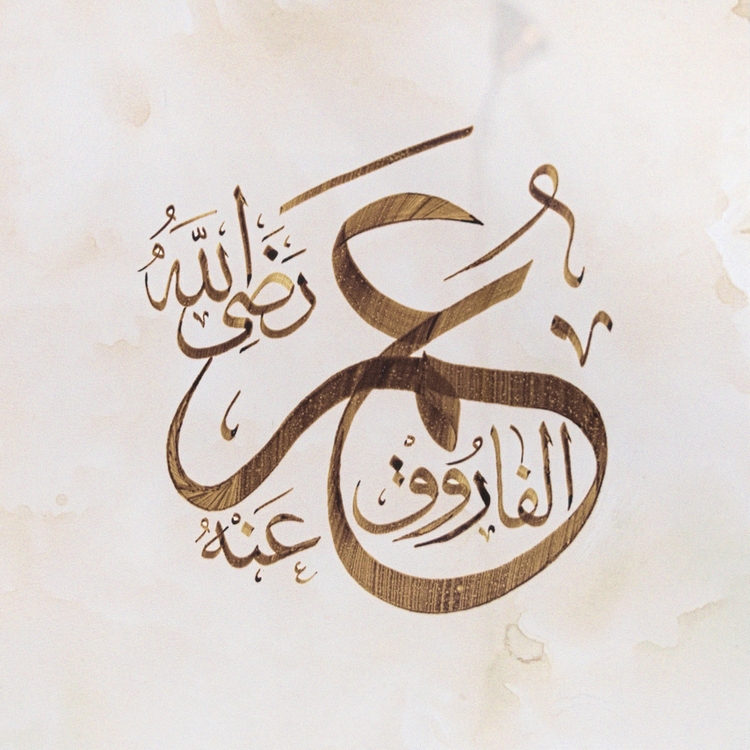 عمر
الفاروق
رَضِيَ اللّٰهُ
عَنْهُ